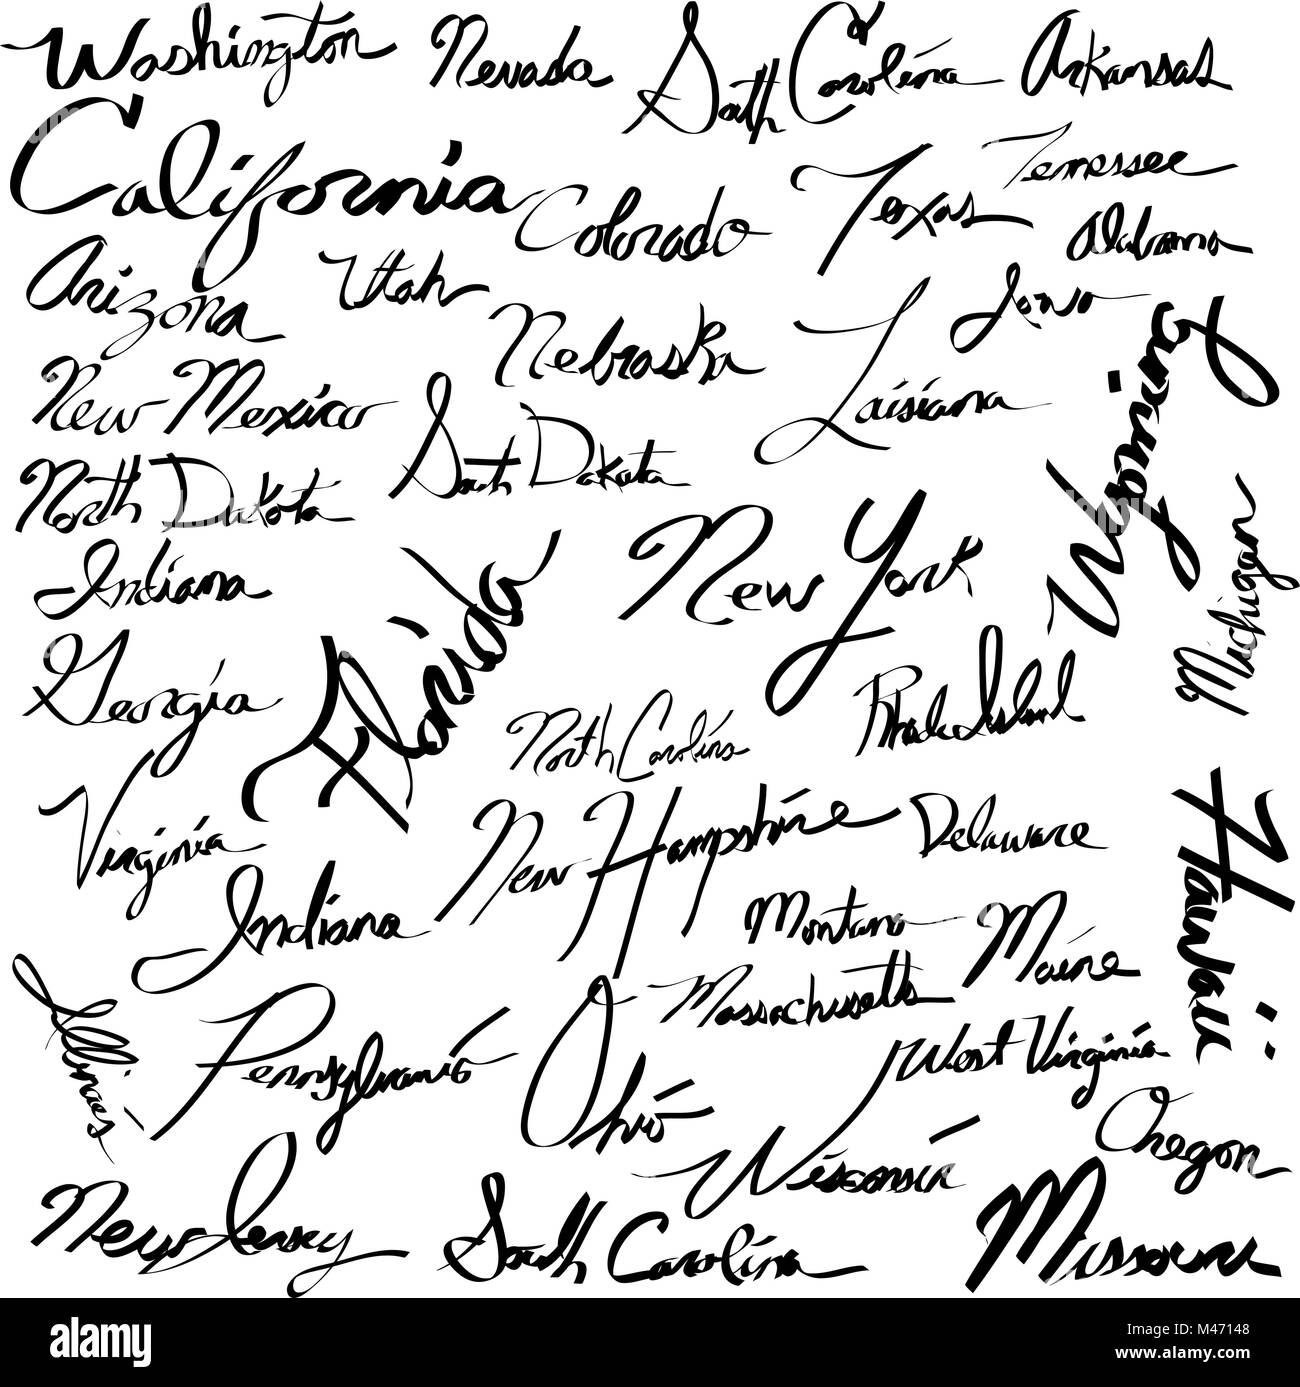 Washington
Nevada
South Carolina
Arkansas
California
Colorado
Texas
Tennessee
Alabama
Arizona
Utah
Nebraska
Iowa
Laisiana
Wyoming
New Mexico
South Dakota
North Dakota
New York
Michigan
Indiana
Florida
Georgia
North Carolina
Rhode Island
Virginia
New Hampshire
Delaware
Hawaii
Indiana
Montana
Maine
Illinois
Massachusetts
Pennsylvania
Ohio
West Virginia
Oregon
Wisconsin
New Jersey
South Carolina
Missouri
alamy stock photo
alamy
Image ID: M47148
www.alamy.com